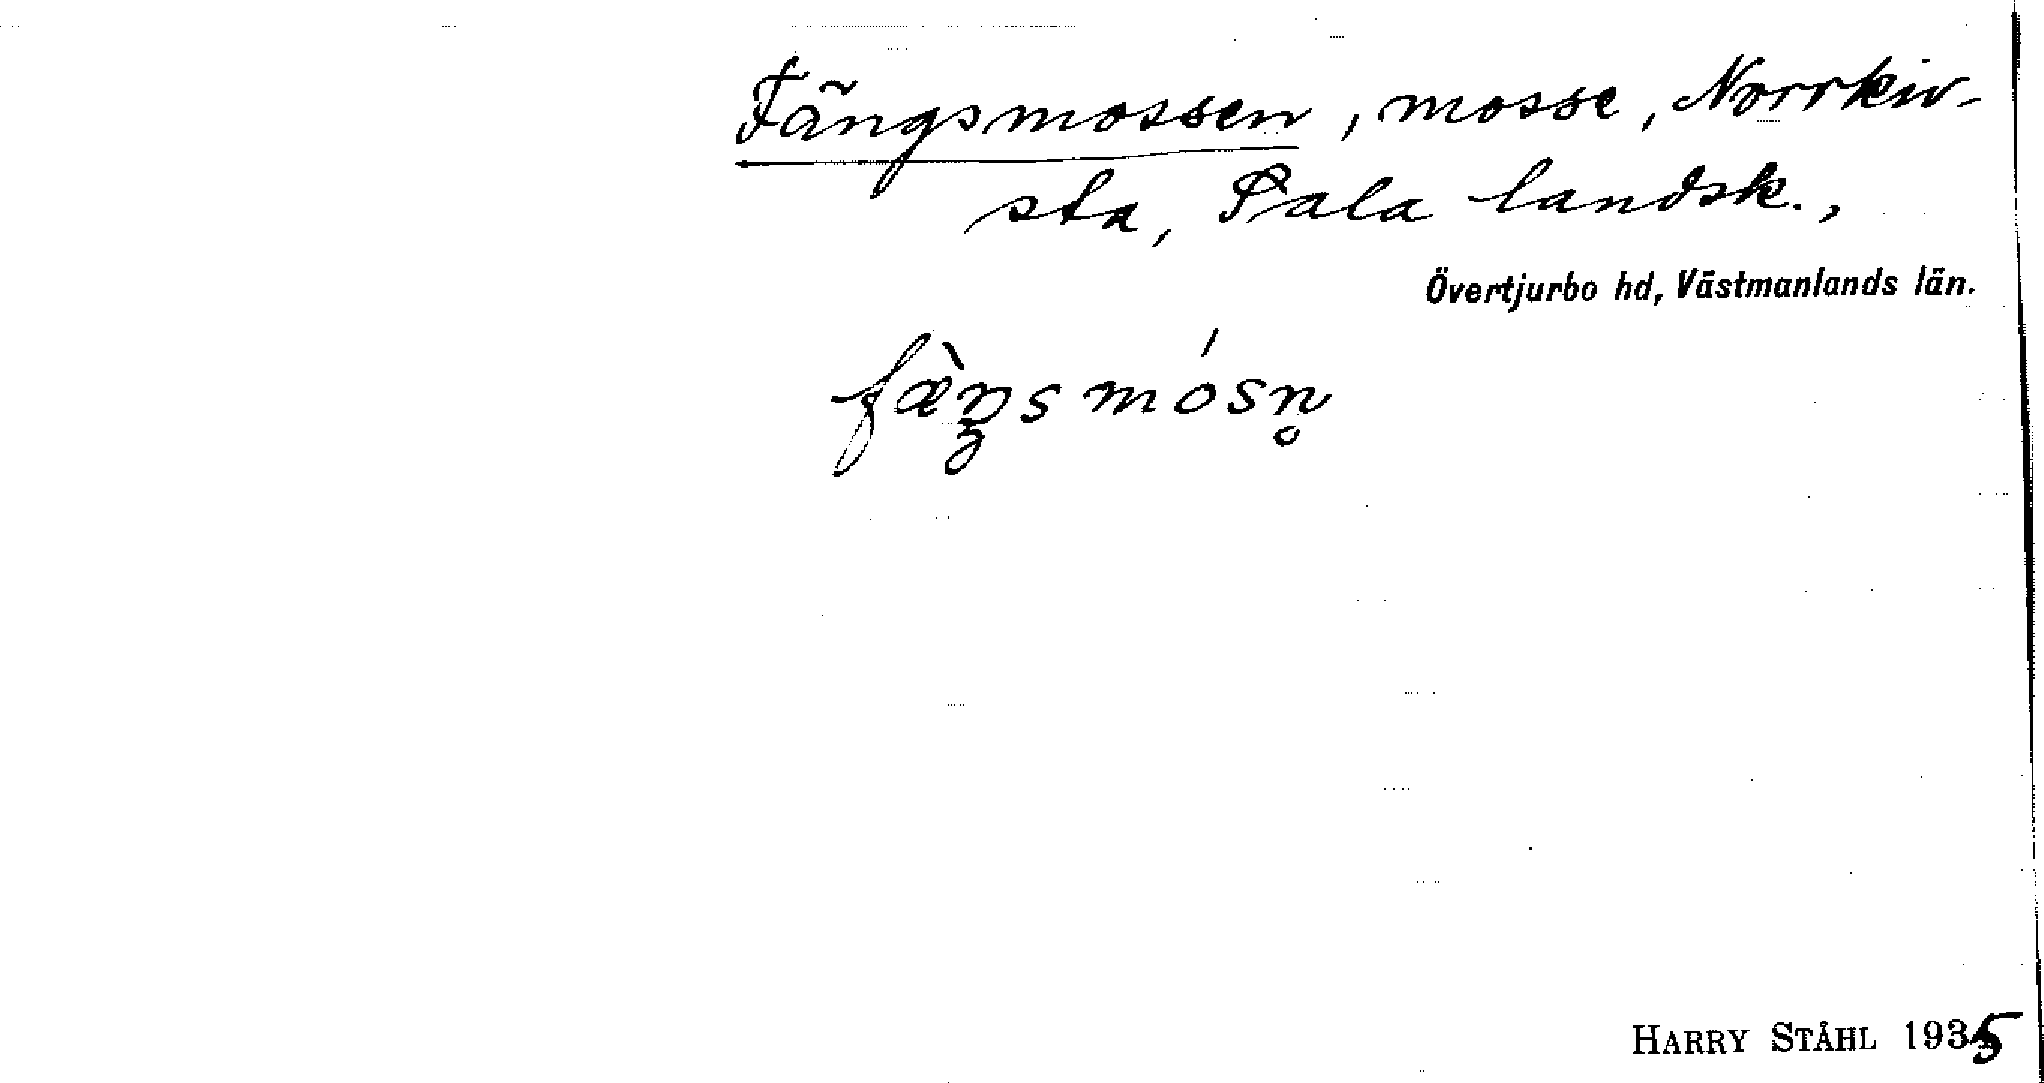 Fängsmossen, mosse, Norrkiv-
sta, Sala landsk.,
Övertjurbo hd, Västmanlands län.
fæ̀ŋsmósn̥
HARRY STÅHL 1935